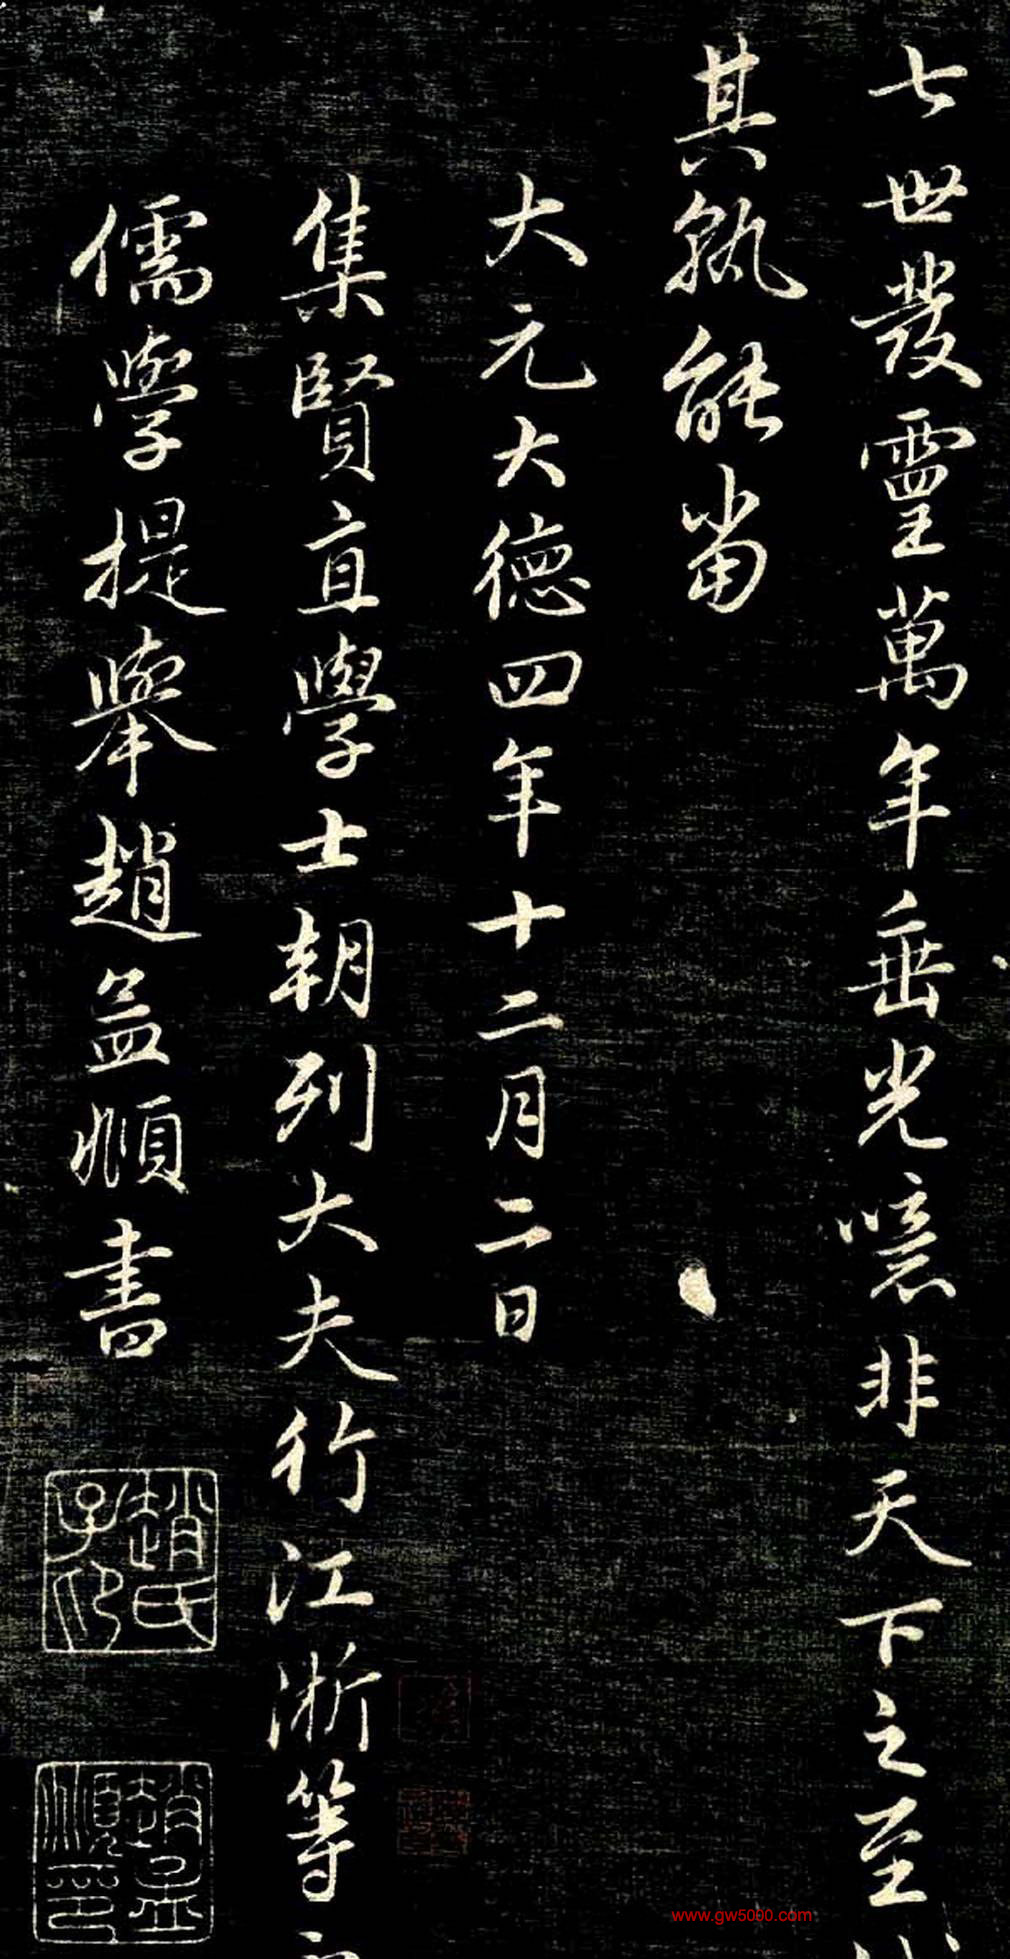 七世發靈萬年垂光噫非天下之至
其孰能當
大元大德四年十二月二日
集賢直學士朝列大夫行江浙等
儒學提舉趙孟頫書
趙氏子印
趙孟頫印
www.gw5000.com